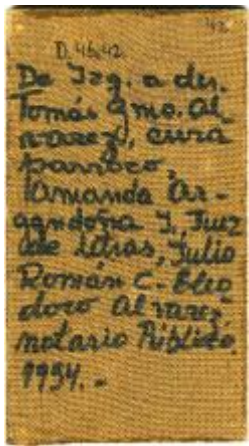 D. 46.42
De Izq. a der.
Tomás Gmo. Al
varez, cura
párroco.
Amanda Ar-
gandoña J., Juez
de Letras, Julio
Román C. - Eleo
doro Alvarez
notario Público
1934.-